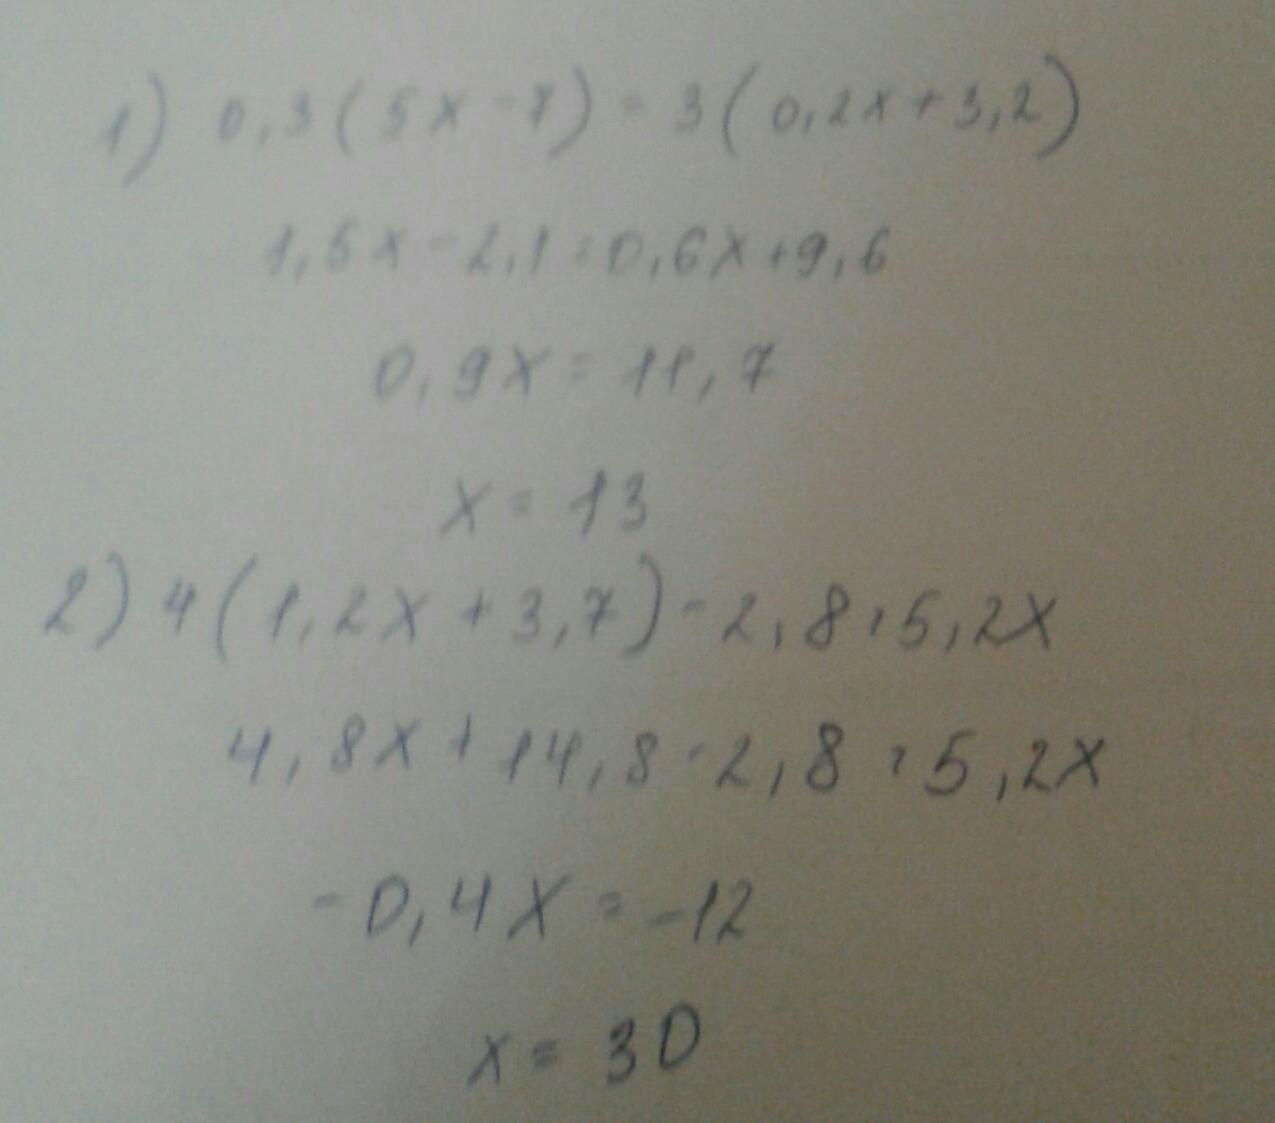 1) 0,3(5x-7)=3(0,2x+3,2)
1,5x-2,1=0,6x+9,6
0,9x=11,7
x=13
2) 4(1,2x+3,7)-2,8=5,2x
4,8x+14,8-2,8=5,2x
-0,4x=-12
x=30